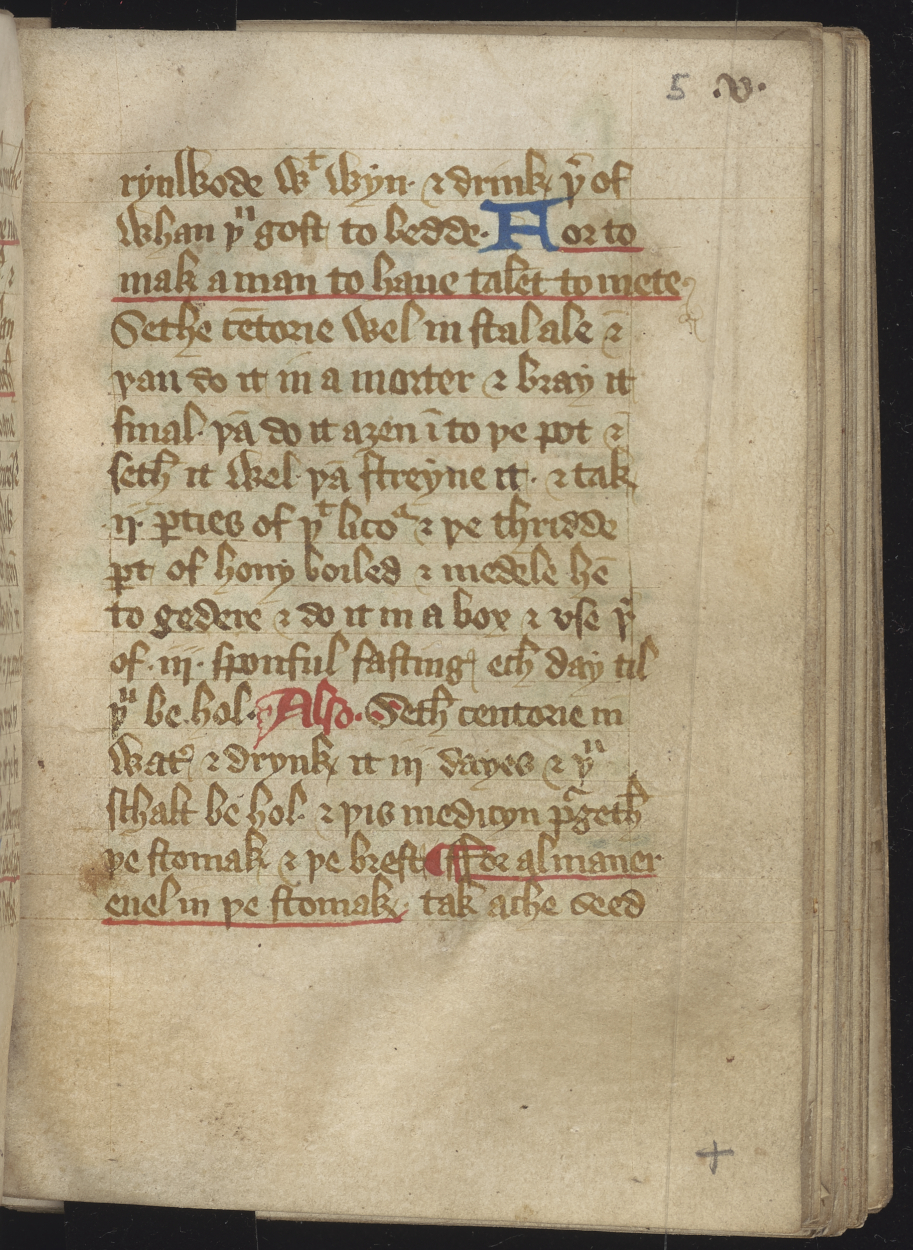 5 .v.
rynwode wᵗ wyn· ⁊ drink þᵉ of
whan þᵘ gost to bedde· For to
mak a man to haue talēt to mete·
Sethe cētorie wel in stal ale ⁊
þan do it in a morter ⁊ bray it
smal· þā do it aȝen ī to þe pot ⁊
seth it wel· þā streyne it· ⁊ tak
ij· ꝑties of þᵗ lico^r ⁊ þe thridde
ꝑt of hony boiled ⁊ medele hē
to gedere ⁊ do it in a box ⁊ vse þᵉ
of· iij· sponful fasting ech day til
þᵘ be hol· Also· Seth centorie in
wat͛ ⁊ drynk it iij dayes ⁊ þᵘ
schalt be hol· ⁊ þis medicyn pᵘgeth
þe stomak ⁊ þe brest ¶ For al maner
euel in þe stomak· tak ache seed
+